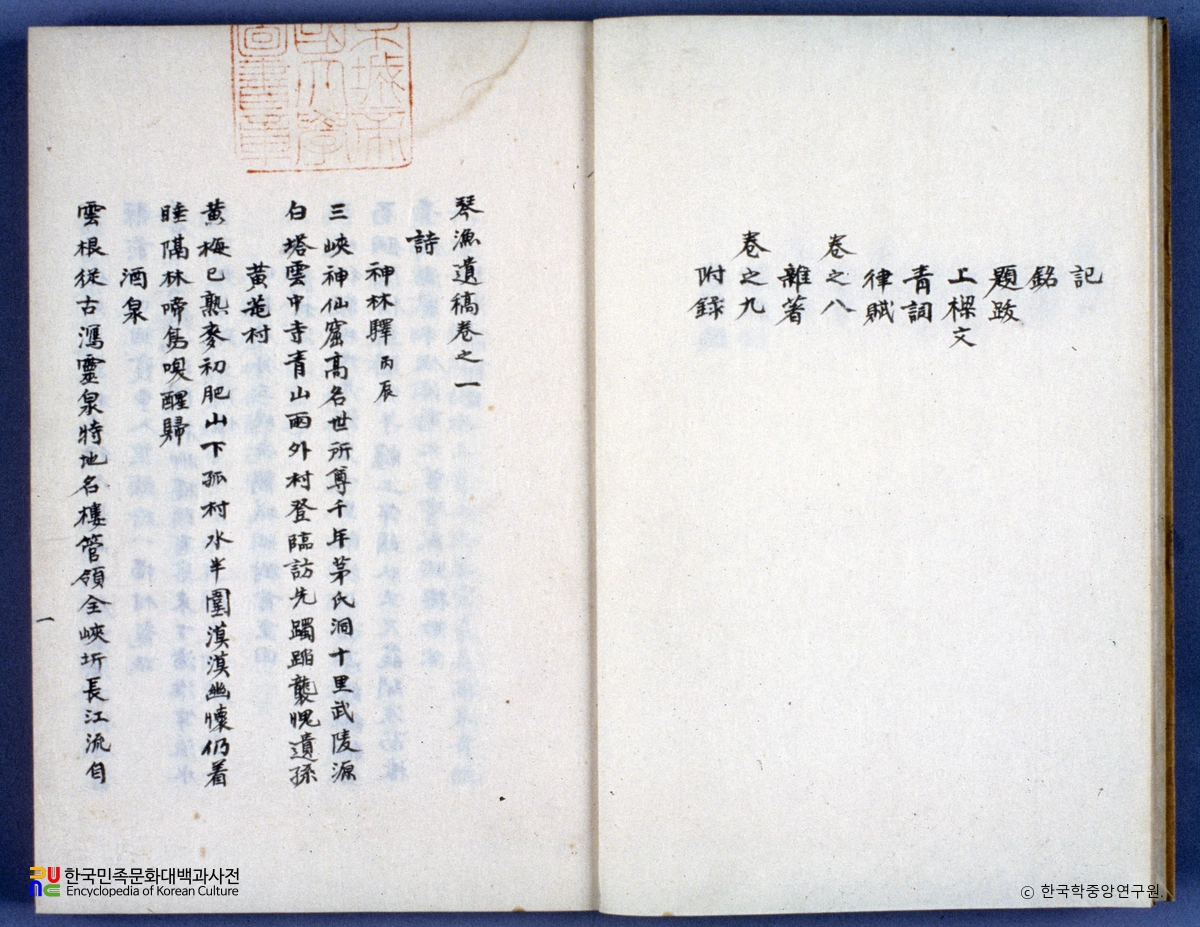 記
銘
題跋
上樑文
青詞
律賦
卷之八
雜著
卷之九
附録
琴漁遺稿卷之一
詩
神林驛 丙辰
三峽神仙窟高名世所尊千年茅氏洞十里武陵源
白塔雲中寺青山雨外村登臨訪先躅踏襲愧遺孫
黄菴村
黄梅已熟麥初肥山下孤村水半圍漠漠幽懷仍着
睡隔林啼鳥喚醒歸
酒泉
雲根從古瀉靈泉特地名樓管領全峽坼長江流自
一
한국민족문화대백과사전
Encyclopedia of Korean Culture
ⓒ 한국학중앙연구원